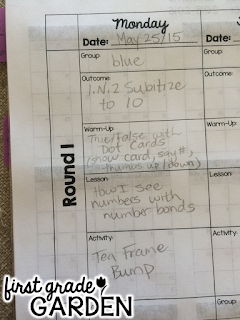 Monday
Date: May 25/15
Group:
blue
Outcome:
1.N.2 Subitize
to 10
Warm-Up:
True/False with
Dot Cards
(show card, say #,
thumbs up/down)
Round 1
Lesson:
How I see
numbers with
number bonds
Activity:
Ten Frame
Bump
Date:
Group:
Outcome:
Warm-Up:
Lesson:
Activity:
Group:
first grade
GARDEN